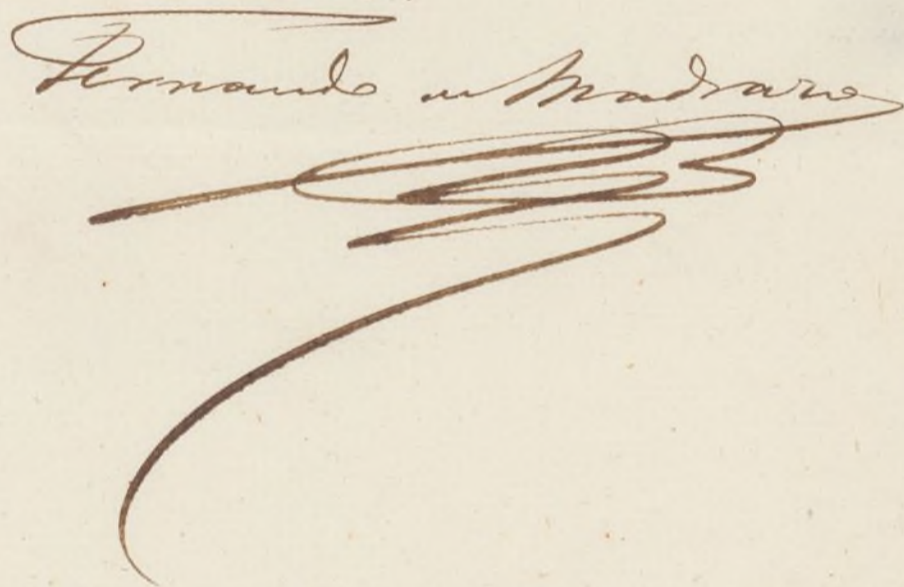 Fernando de Madrazo